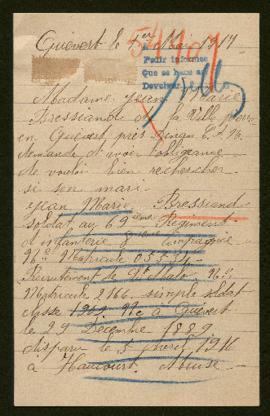 Quévert le 1er Mai 1917
Pedir informes
Que se hace
Devolver
Madame Jean Marie
Bressiand de la Ville
en Quévert près Dinan C.d.N.
demande d'avoir l'obligeance
de vouloir bien rechercher
si son mari
Jean Marie Bressiand
soldat au 69ème Régiment
d'infanterie 8 compagnie
No Matricule 05554
Recrutement de St Malo No
Matricule 2166 simple soldat
classe 1909 Né à Quévert
le 29 Décembre 1889
disparu le 5 1916
à Haucourt Meuse